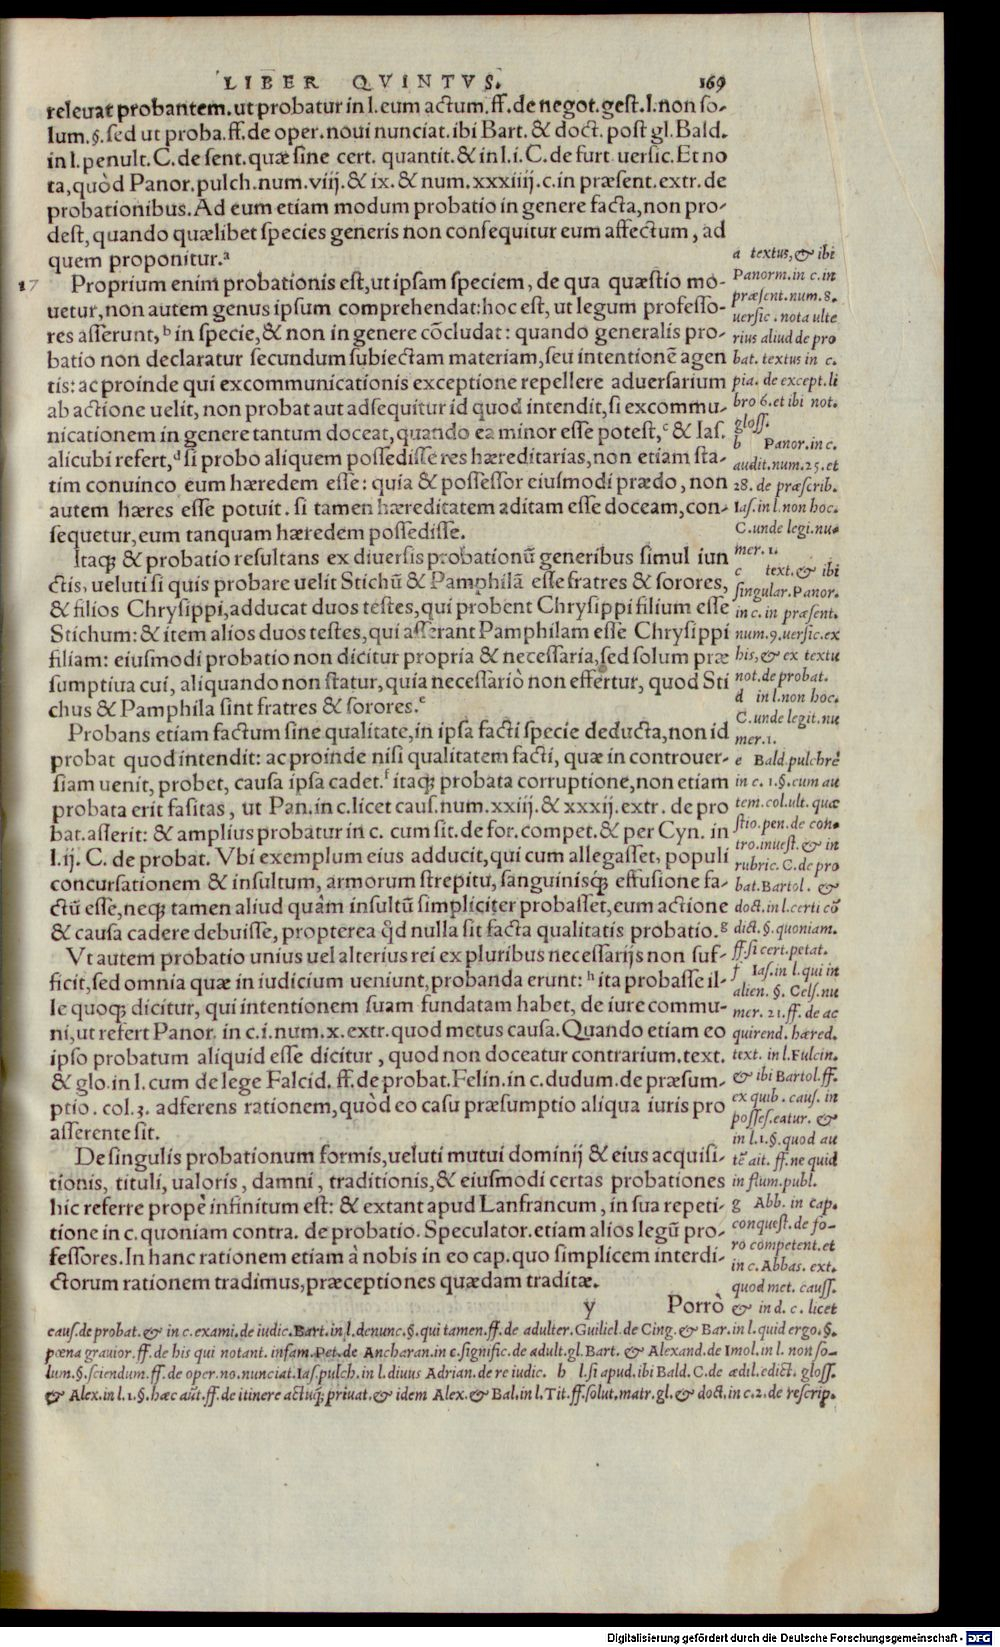 LIBER QVINTVS. 169
releuat probantem. ut probatur in l. eum actum. ff. de negot. gest. l. non so-
lum. §. sed ut proba. ff. de oper. noui nunciat. ibi Bart. & doct. post gl. Bald.
in l. penult. C. de sent. quæ sine cert. quantit. & in l. i. C. de furt uersic. Et no
ta, quòd Panor. pulch. num. viij. & ix. & num. xxxiiij. c. in præsent. extr. de
probationibus. Ad eum etiam modum probatio in genere facta, non pro-
dest, quando quælibet species generis non consequitur eum affectum, ad
quem proponitur.ª
17 Proprium enim probationis est, ut ipsam speciem, de qua quæstio mo-
uetur, non autem genus ipsum comprehendat: hoc est, ut legum professo-
res asserunt, ᵇ in specie, & non in genere cōcludat: quando generalis pro-
batio non declaratur secundum subiectam materiam, seu intentionē agen
tis: ac proinde qui excommunicationis exceptione repellere aduersarium
ab actione uelit, non probat aut adsequitur id quod intendit, si excommu-
nicationem in genere tantum doceat, quando ea minor esse potest, ᶜ & Ias.
alicubi refert, ᵈ si probo aliquem possedisse res hæreditarias, non etiam sta-
tim conuinco eum hæredem esse: quia & possessor eiusmodi prædo, non
autem hæres esse potuit. si tamen hæreditatem aditam esse doceam, con-
sequetur, eum tanquam hæredem possedisse.
Itaq; & probatio resultans ex diuersis probationū generibus simul iun
ctis, ueluti si quis probare uelit Stichū & Pamphilā esse fratres & sorores,
& filios Chrysippi, adducat duos testes, qui probent Chrysippi filium esse
Stichum: & item alios duos testes, qui asserant Pamphilam esse Chrysippi
filiam: eiusmodi probatio non dicitur propria & necessaria, sed solum præ
sumptiua cui, aliquando non statur, quia necessariò non effertur, quod Sti
chus & Pamphila sint fratres & sorores.ᵉ
Probans etiam factum sine qualitate, in ipsa facti specie deducta, non id
probat quod intendit: ac proinde nisi qualitatem facti, quæ in controuer-
siam uenit, probet, causa ipsa cadet.ᶠ itaq; probata corruptione, non etiam
probata erit falsitas, ut Pan. in c. licet caus. num. xxiij. & xxxij. extr. de pro
bat. asserit: & amplius probatur in c. cum sit. de for. compet. & per Cyn. in
l. ij. C. de probat. Vbi exemplum eius adducit, qui cum allegasset, populi
concursationem & insultum, armorum strepitu, sanguinisq; effusione fa-
ctū esse, neq; tamen aliud quàm insultū simpliciter probasset, eum actione
& causa cadere debuisse, propterea q̊d nulla sit facta qualitatis probatio.ᵍ
Vt autem probatio unius uel alterius rei ex pluribus necessarijs non suf-
ficit, sed omnia quæ in iudicium ueniunt, probanda erunt: ʰ ita probasse il-
le quoq; dicitur, qui intentionem suam fundatam habet, de iure commu-
ni, ut refert Panor. in c. i. num. x. extr. quod metus causa. Quando etiam eo
ipso probatum aliquid esse dicitur, quod non doceatur contrarium. text.
& glo. in l. cum de lege Falcid. ff. de probat. Felin. in c. dudum. de præsum-
ptio. col. 3. adferens rationem, quòd eo casu præsumptio aliqua iuris pro
asserente sit.
De singulis probationum formis, ueluti mutui dominij & eius acquisi-
tionis, tituli, ualoris, damni, traditionis, & eiusmodi certas probationes
hic referre propè infinitum est: & extant apud Lanfrancum, in sua repeti-
tione in c. quoniam contra. de probatio. Speculator. etiam alios legū pro-
fessores. In hanc rationem etiam à nobis in eo cap. quo simplicem interdi-
ctorum rationem tradimus, præceptiones quædam traditæ.
y Porrò
a textus, & ibi
Panorm. in c. in
præsent. num. 8.
uersic. nota ulte
rius aliud de pro
bat. textus in c.
pia. de except. li
bro 6. et ibi not.
gloss.
b Panor. in c.
audit. num. 25. et
28. de præscrib.
Ias. in l. non hoc.
C. unde legi. nu-
mer. 1.
c text. & ibi
singular. Panor.
in c. in præsent.
num. 9. uersic. ex
his, & ex textu
not. de probat.
d in l. non hoc.
C. unde legit. nu
mer. 1.
e Bald. pulchrè
in c. 1. §. cum au
tem. col. ult. quæ
stio. pen. de con-
tro. inuest. & in
rubric. C. de pro
bat. Bartol. &
doct. in l. certi cō
dict. §. quoniam.
ff. si cert. petat.
f Ias. in l. qui in
alien. §. Cels. nu
mer. 21. ff. de ac
quirend. hæred.
text. in l. Fulcin.
& ibi Bartol. ff.
ex quib. caus. in
posses. eatur. &
in l. 1. §. quod au
tē ait. ff. ne quid
in flum. publ.
g Abb. in cap.
conquest. de fo-
ro competent. et
in c. Abbas. ext.
quod met. causs.
& in d. c. licet
caus. de probat. & in c. exami. de iudic. Bart. in l. denunc. §. qui tamen. ff. de adulter. Guiliel. de Cing. & Bar. in l. quid ergo. §.
pœna grauior. ff. de his qui notant. infam. Pet. de Ancharan. in c. signific. de adult. gl. Bart. & Alexand. de Imol. in l. non so-
lum. §. sciendum. ff. de oper. no. nunciat. Ias. pulch. in l. diuus Adrian. de re iudic. h l. si apud. ibi Bald. C. de ædil. edict. gloss.
& Alex. in l. 1. §. hæc aūt. ff. de itinere actuq; priuat. & idem Alex. & Bal. in l. Tit. ff. solut. matr. gl. & doct. in c. 2. de rescrip.
Digitalisierung gefördert durch die Deutsche Forschungsgemeinschaft - DFG